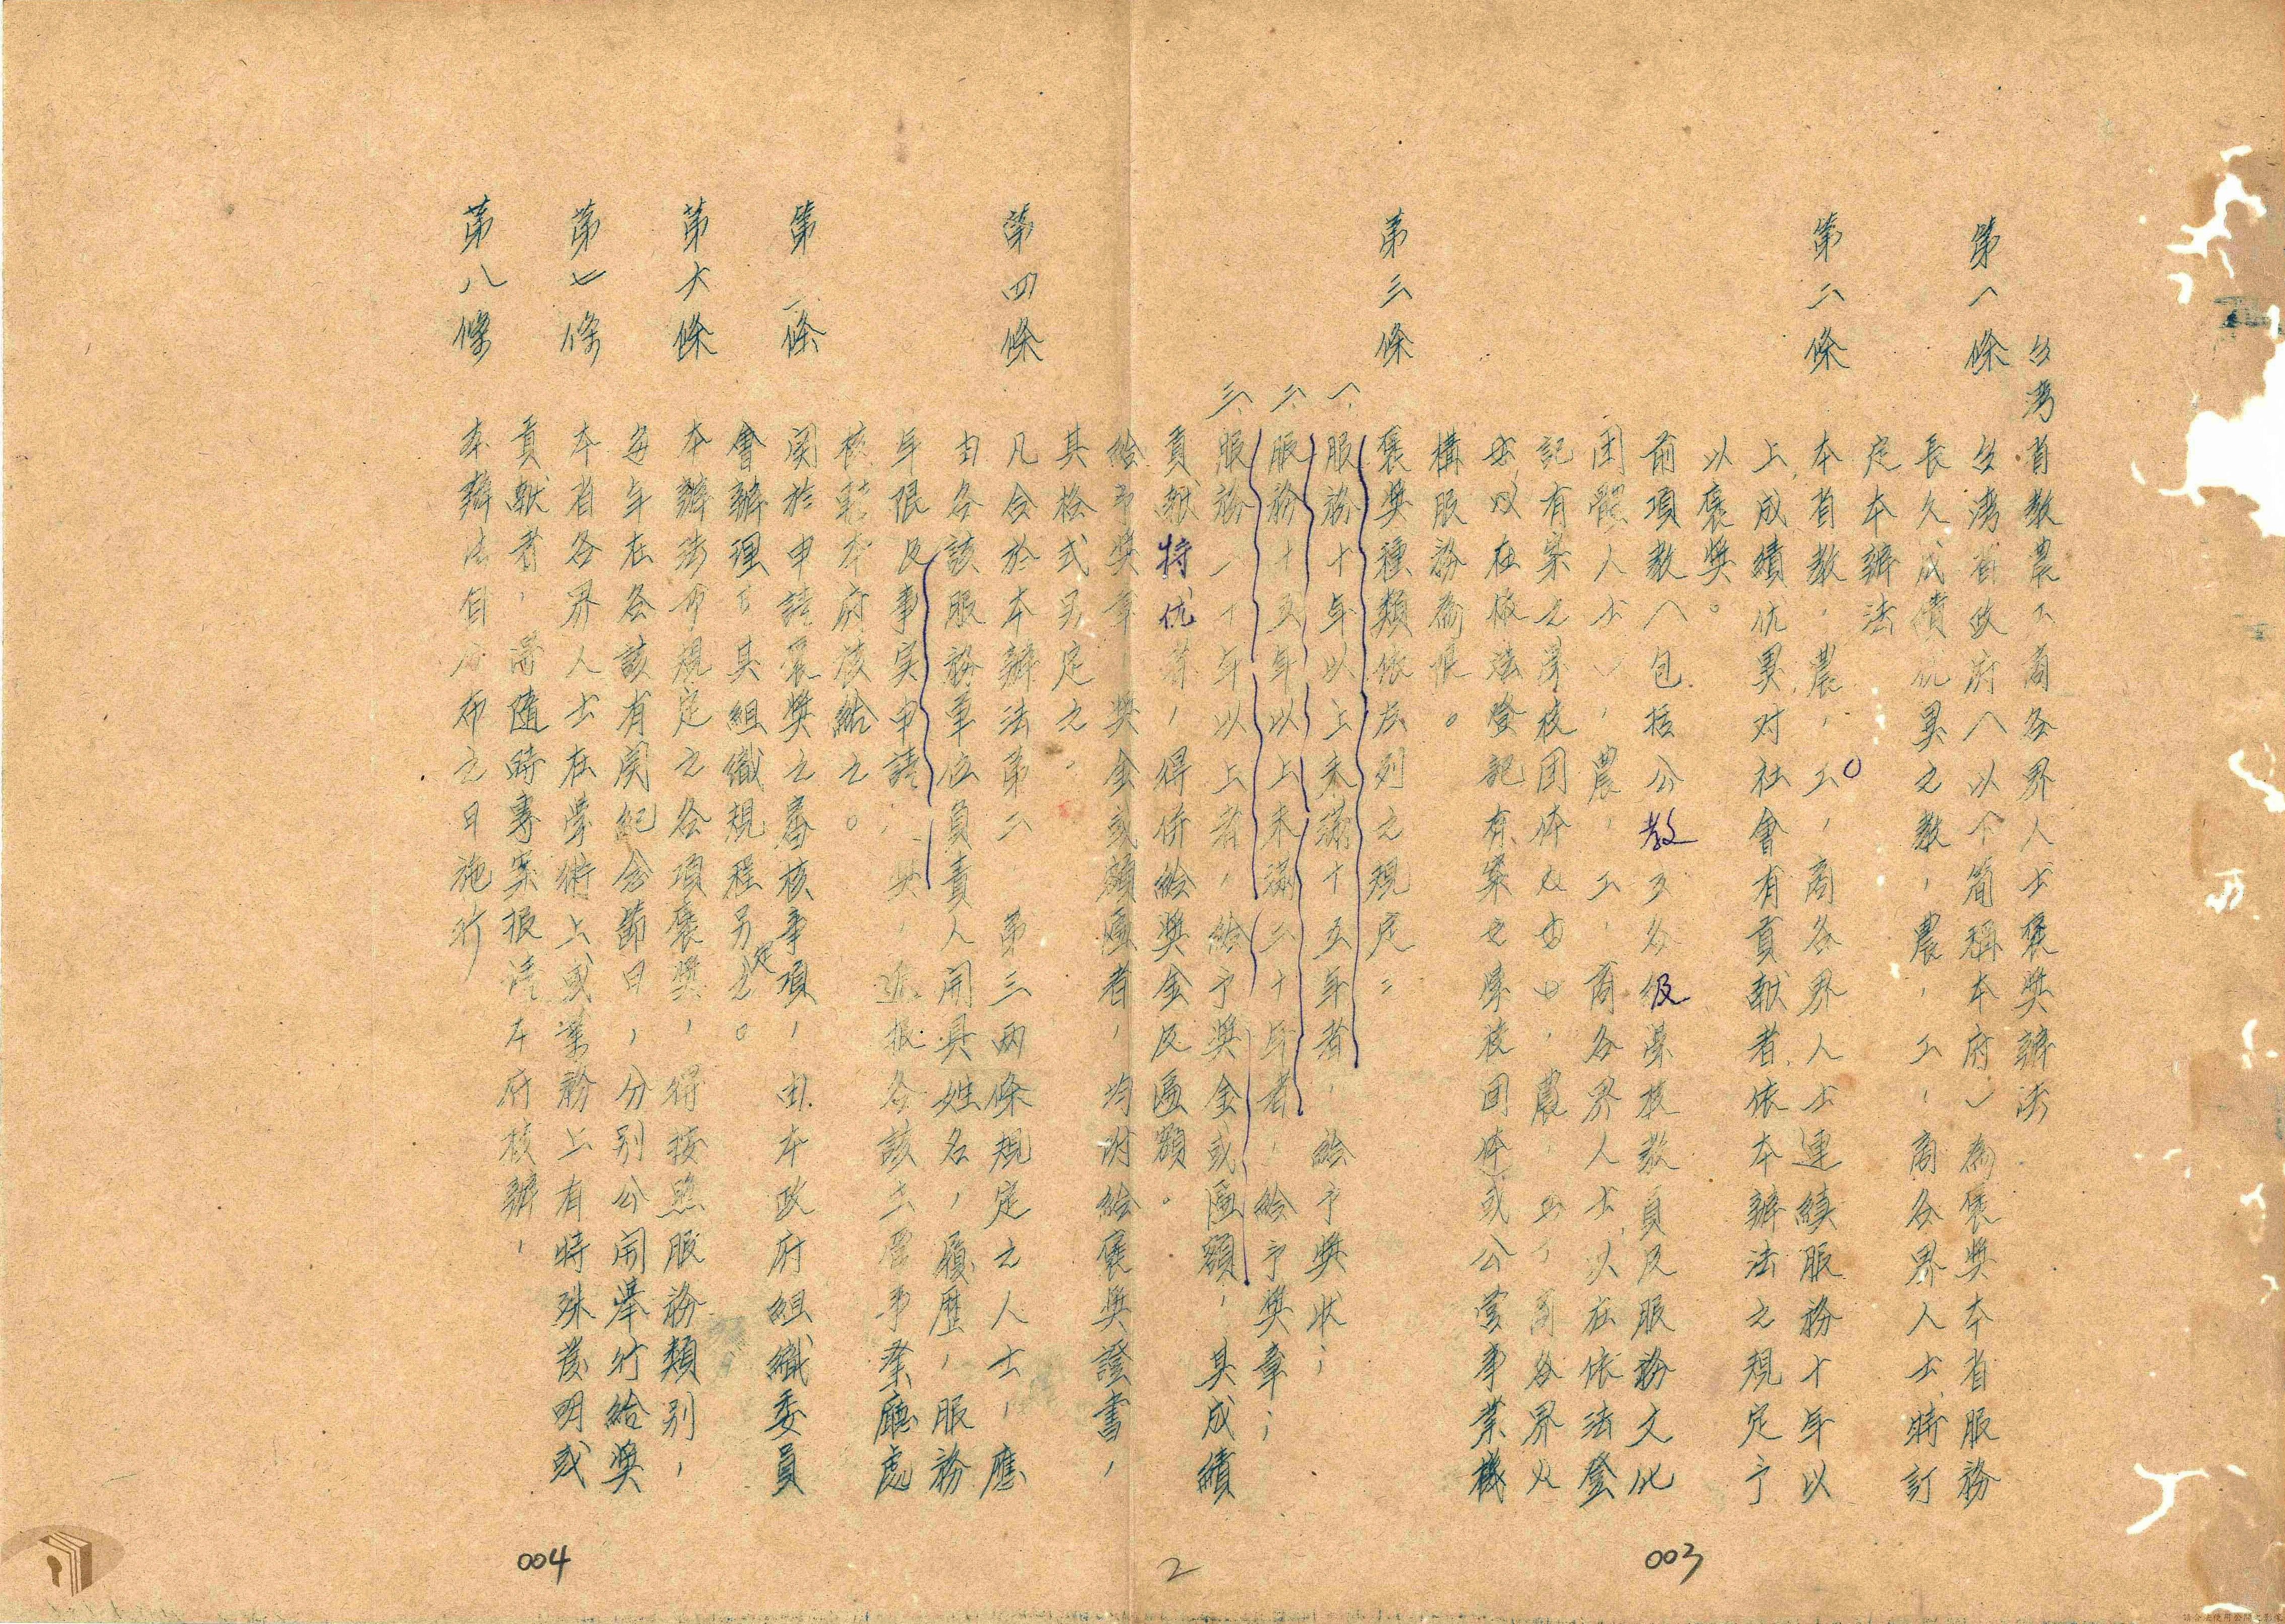 台湾省教農工商各界人士褒奨辦法
第一條 台湾省政府（以下簡稱本府）為褒奨本省服務
長久成績优異之教，農，工，商各界人士，特訂
定本辦法
第二條 本省教，農，工，商各界人士連續服務十年以
上成績优異，对社會有貢献者，依本辦法之規定予
以褒奨。
前項教（包括公教ヌ各級學校教員及服務文化
团體人士），農，工，商各界人士，以在依法登
記有案之學校团体，農，工，商各界以
在依法登記有案之學校团体或公营事業機
構服務為限。
第三條 褒奨種類依左列之規定：
一、服務十年以上未滿十五年者，給予奨狀；
二、服務十五年以上未滿二十年者，給予奨章；
三、服務二十年以上者，給予奨金或匾額，其成績
貢献特优者，得併給奨金及匾額。
給予奨章，奨金或額匾者，均附給褒奨證書，
其格式另定之。
第四條 凡合於本辦法第二 第三两條規定之人士，應
由各該服務单位負責人開具姓名，履歷，服務
年限及事实申請，奨，逕报各該主管事業廳處
核轉本府核給之。
第 條 関於申請褒奨之審核事項，由本政府組織委員
會辦理，其組織規程另定之。
第六條 本辦法所規定之各項褒奨，得按照服務類別，
每年在各該有関紀念節日，分別公開舉行給奨
第七條 本省各界人士在學術上或業務上有特殊發明或
貢献者，得隨時專案报請本府核辦，
第八條 本辦法自公布之日施行
003
2
004